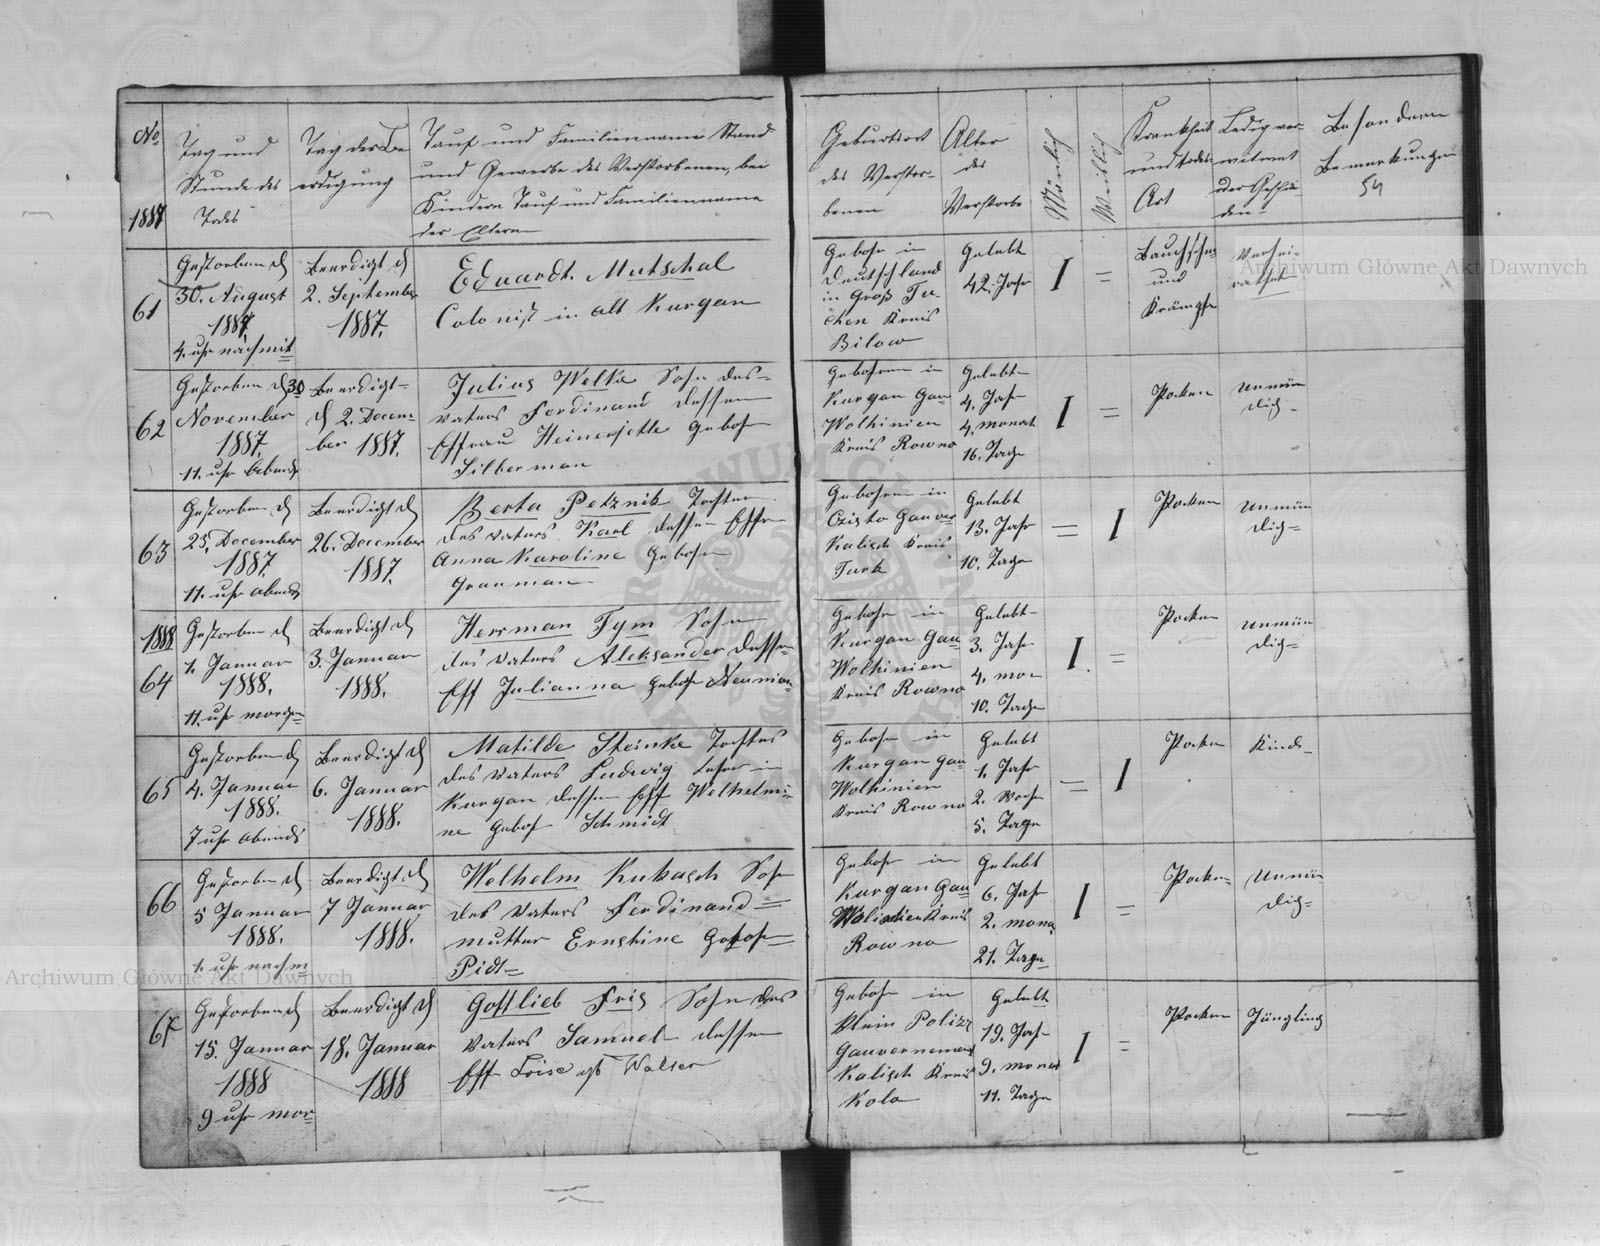 No
1887
Tag und
Stunde des
Todes
Tag der Be
erdigung
Tauf und Familienname Stand
und Gewerbe des Verstorbenen, bei
Kindern Tauf und Familienname
der Eltern
Geburtsort
des Verstor-
benen
Alter
des
Verstorbe
Mänlich
Weiblich
Krankheit
und todes
Art
Ledig ver-
witwet
oder Geschie
den
Besondere
Bemerkungen
54
61
Gestorben d
30. August
1887
4. uhr nachmit
Beerdigt d
2. September
1887.
Eduardt. Mutschal
Colonist in alt Kurgan
Geboh in
Deutschland
in Groß Tu-
chen Kreis
Bilow
Gelebt
42. Jahr
I
=
und
Krämpfe
Verhei-
rathet
62
Gestorben d 30
November
1887.
11. uhr Abends
Beerdigt
d 2. Decem-
ber 1887.
Julius Welke Sohn des-
vaters Ferdinand dessen
Ehfrau Heinerjette Geboh
Silberman
Gebohren in
Kurgan Gau
Wolhinien
Kreis Rowno
Gelebt
4. Jahr
4. monat
16. Tage
I
=
Pocken
Unmün
dich-
63
Gestorben d
25. December
1887.
11. uhr abends
Beerdigt d
26. December
1887.
Berta Petznik Tochter
des vaters Karl dessen Ehfr
Anna Karoline Geboh
Grauman
Gebohren in
Gauver
Kalisch Kreis
Turk
Gelebt
13. Jahr
10. Tage
=
I
Pocken
Unmün
dich=
1888
64
Gestorben d
1. Januar
1888.
11. uhr morgen
Beerdigt d
3. Januar
1888.
Herrman Tym Sohn
des vaters Aleksander dessen
Ehf Julianna geboh Neuman
Geboh in
Kurgan Gau
Wolhinien
Kreis Rowno
Gelebt
3. Jahr
4. mo-
10. Tage
I.
=
Pocken
Unmün
dich=
65
Gestorben d
4. Januar
1888.
7 uhr abends
Beerdigt d
6. Januar
1888.
Matilde Steinke Tochter
des vaters Ludwig Lehrer in
Kurgan dessen Ehf Welhelmi=
ne Geboh Schmidt
Geboh in
Kurgan Gau
Wolhinien
Kreis Rowno
Gelebt
1. Jahr
2. Woche
5. Tage
=
I
Pocken
Kind-
66
Gestorben d
5 Januar
1888.
1. uhr nachm
Beerdigt d
7 Januar
1888.
Welhelm Kukasch Sohn
des vaters Ferdinand=
mutter Ernstine Geboh=
Pidt=
Geboh in
Kurgan Gau
Kreis
Rowno
Gelebt
6. Jahr
2. mona
21. Tage
I
=
Pocken
Unmün
dich=
67
Gestorben d
15. Januar
1888
9 uhr mor
Beerdigt d
18. Januar
1888
Gottlieb Fris Sohn des
vaters Samuel dessen
Ehf Loise geb Walter
Geboh in
Klein Polizz
Gauvernement
Kalisch Kreis
Kolo
Gelebt
19. Jahr
9. monat
11. Tage
I
=
Pocken
Jüngling
Archiwum Główne Akt Dawnych
Archiwum Główne Akt Dawnych